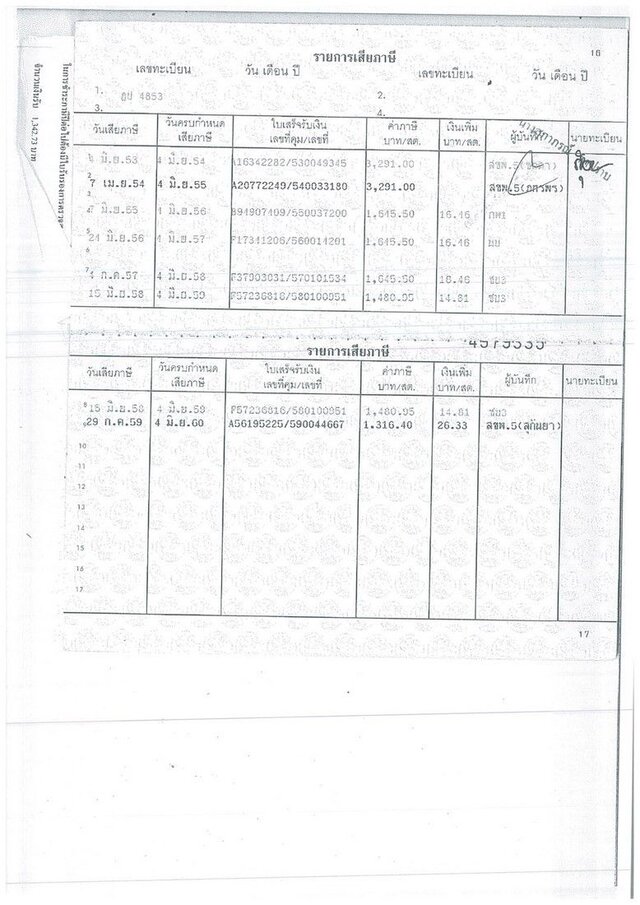 16
รายการเสียภาษี
เลขทะเบียน วัน เดือน ปี เลขทะเบียน วัน เดือน ปี
1. ฎป 4853 2.
3. 4.
วันเสียภาษี วันครบกำหนดเสียภาษี ใบเสร็จรับเงิน เลขที่คุม/เลขที่ ค่าภาษี บาท/สต. เงินเพิ่ม บาท/สต. ผู้บันทึก นายทะเบียน
มิ.ย.53 4 มิ.ย.54 A16342282/530049345 3,291.00 สขพ.5
2 7 เม.ย.54 4 มิ.ย.55 A20772249/540033180 3,291.00 สขพ.5(ภสรพร)
มิ.ย.55 4 มิ.ย.56 B94907409/550037200 1,645.50 16.46
5 24 มิ.ย.56 4 มิ.ย.57 F17341206/560014201 1,645.50 16.46
ก.ค.57 4 มิ.ย.58 F37903031/570101534 1,645.50 16.46 ชย3
15 มิ.ย.58 4 มิ.ย.59 F57236816/580100951 1,480.95 14.81 ชย3
4979535
รายการเสียภาษี
วันเสียภาษี วันครบกำหนดเสียภาษี ใบเสร็จรับเงิน เลขที่คุม/เลขที่ ค่าภาษี บาท/สต. เงินเพิ่ม บาท/สต. ผู้บันทึก นายทะเบียน
8 15 มิ.ย.58 4 มิ.ย.59 F57236816/580100951 1,480.95 14.81 ชย3
29 ก.ค.59 4 มิ.ย.60 A56195225/590044667 1,316.40 26.33 สขพ.5(สุกันยา)
10
11
12
13
14
15
16
17
17
จำนวนเงินรับ 1,342.73 บาท